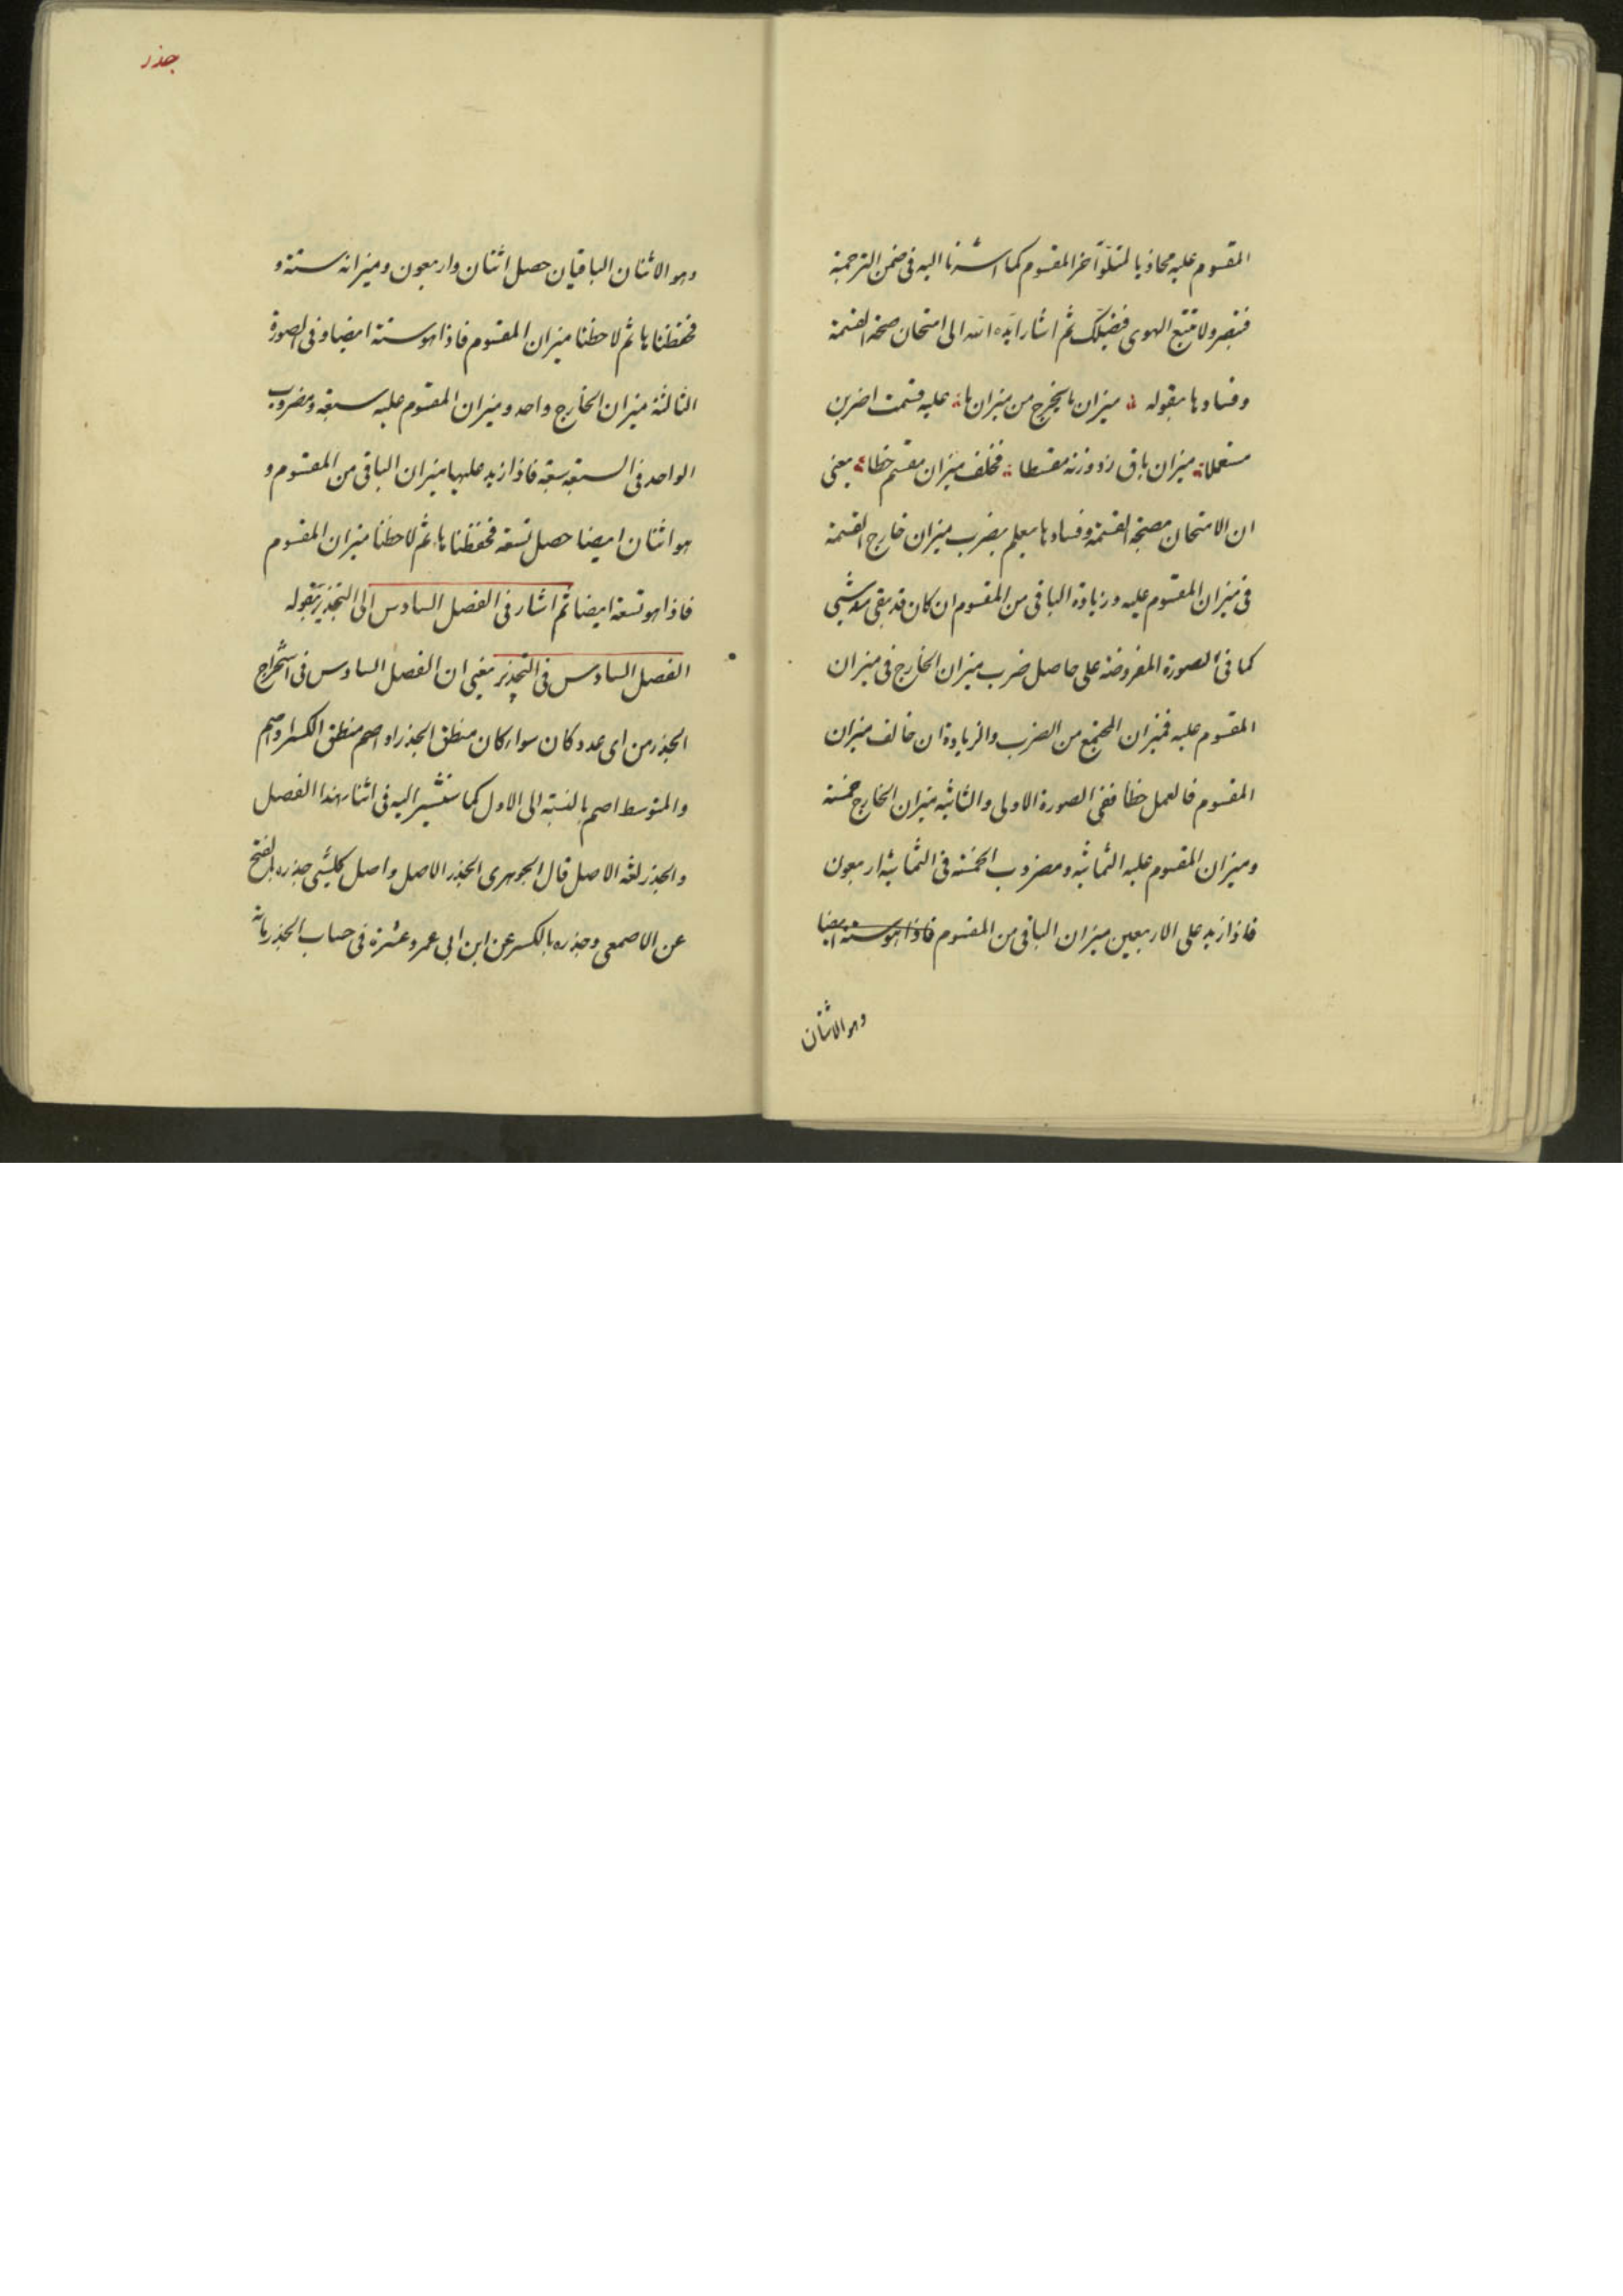 المقسوم عليه محاذيا لمتلو آخر المقسوم كما اشرنا اليه فى ضمن الترجمة
فتبصر ولا تتبع الهوى فيضلك ثم اشار ايده الله الى امتحان صحة القسمة
وفسادها بقوله ميزان ما يخرج من ميزان ما عليه قسمت اضربن
مستعملا ميزان باق زد وزنه مقسطا فخلف ميزان مقسم خطاء يعنى
ان الامتحان بصحة القسمة وفسادها يعلم بضرب ميزان خارج القسمة
فى ميزان المقسوم عليه وزيادة الباقى من المقسوم ان كان قد بقى منه شيى
كما فى الصورة المفروضة على حاصل ضرب ميزان الخارج فى ميزان
المقسوم عليه فميزان المجتمع من الضرب والزيادة ان خالف ميزان
المقسوم فالعمل خطأ ففى الصورة الاولى والثانية ميزان الخارج خمسة
وميزان المقسوم عليه الثمانية ومضروب الخمسة فى الثمانية اربعون
فاذا زيد على الاربعين ميزان الباقى من المقسوم فاذا هو ستة ايضا
وهو الاثنان
جذر
وهو الاثنان الباقيان حصل اثنان واربعون وميزانه ستة و
فحفظناها ثم لاحظنا ميزان المقسوم فاذا هو ستة ايضا وفى الصورة
الثالثة ميزان الخارج واحد وميزان المقسوم عليه سبعة ومضروب
الواحد فى السبعة سبعة فاذا زيد عليها ميزان الباقى من المقسوم و
هو اثنان ايضا حصل تسعة فحفظناها ثم لاحظنا ميزان المقسوم
فاذا هو تسعة ايضا ثم اشار فى الفصل السادس الى التجذير بقوله
الفصل السادس فى التجذير يعنى ان الفصل السادس فى استخراج
الجذر من اى عدد كان سواء كان منطق الجذر او اصم منطق الكسر او اصم
والمتوسط اصم بالنسبة الى الاول كما سنشير اليه فى اثناء هذا الفصل
والجذر لغة الاصل قال الجوهرى الجذر الاصل واصل كل شيى جذره بالفتح
عن الاصمعى وجذره بالكسر عن ابن ابى عمرو عشرة فى حساب الجذر مائة